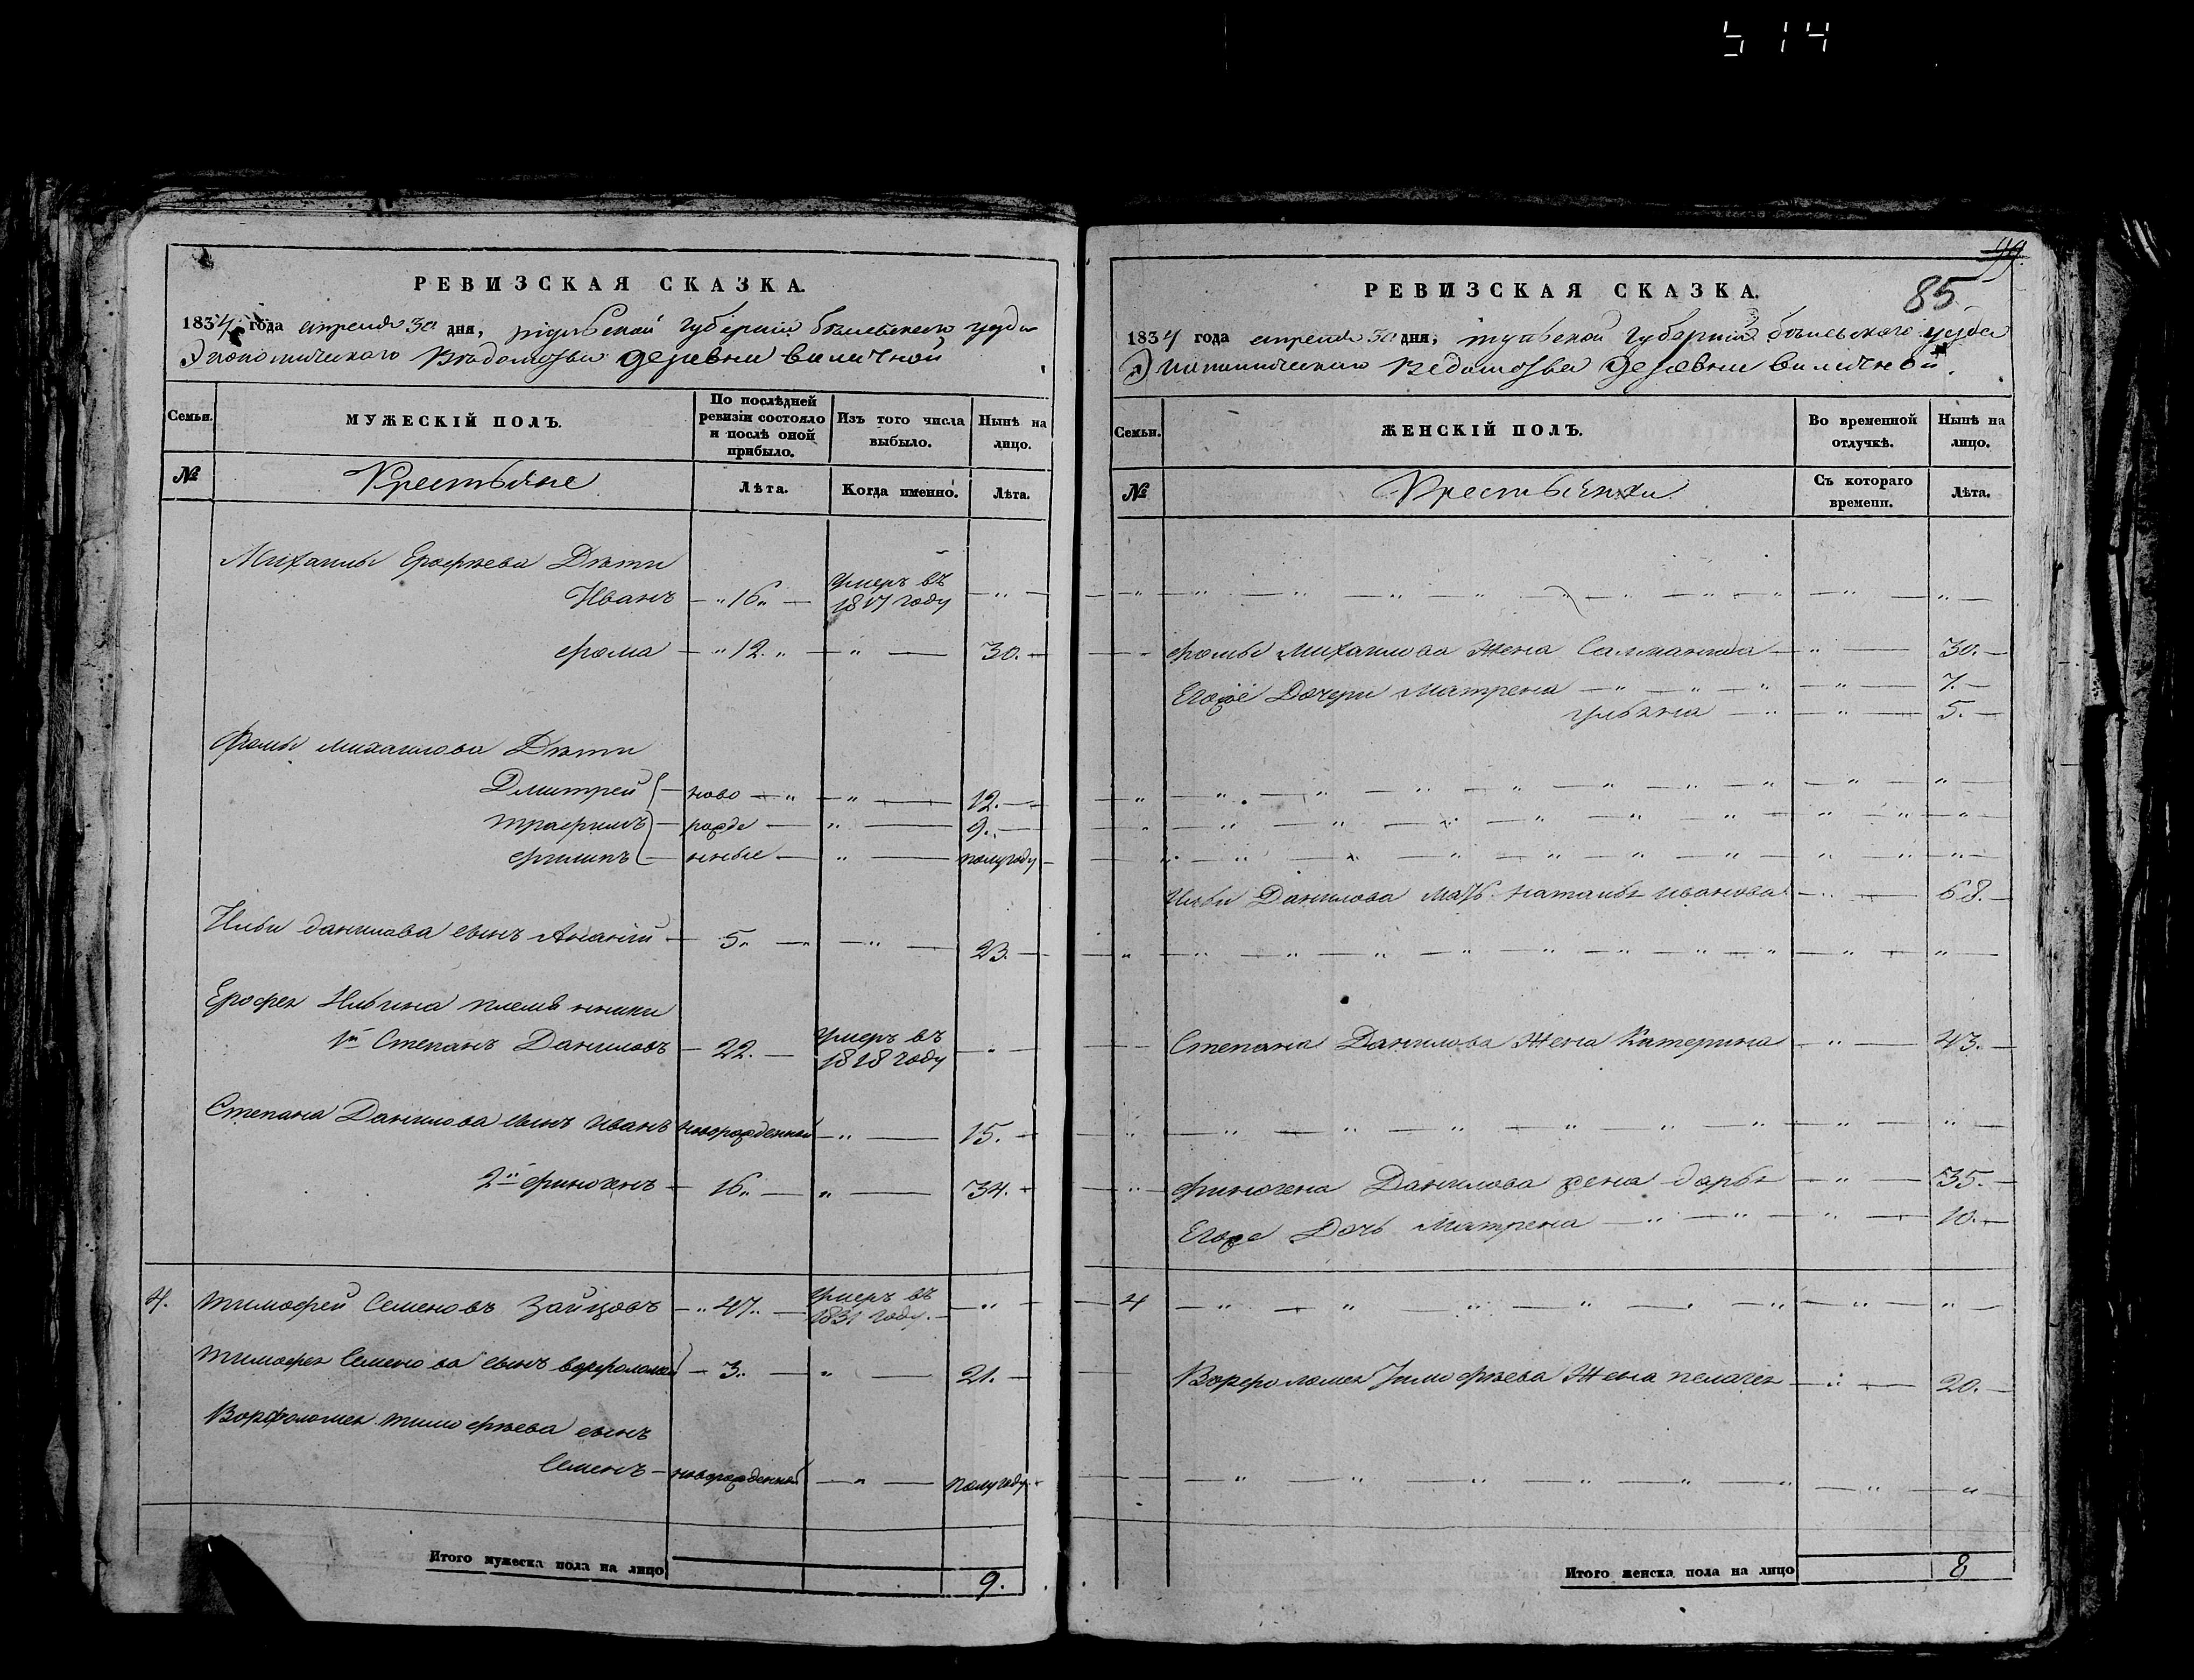 514
РЕВИЗСКАЯ СКАЗКА.
1834 года апреля 30 дня, тульской губернии белевскаго уезда
Экономическаго Ведомства деревни величной
Семьи.
МУЖЕСКІЙ ПОЛЪ.
По послѣдней ревизіи состояло и послѣ оной прибыло.
Изъ того числа выбыло.
Нынѣ на лицо.
№
Крестьяне
Лѣта.
Когда именно.
Лѣта.
Михаилы Ерофѣева Дѣти
Иванъ — „16„ — умеръ въ 1817 году — „ —
фома — „12.„ — „ — 30. —
Фомы михаилова Дѣти
Дмитрей — ново — „ — „ — 12. —
трафимъ — рожде — „ — 9. —
филипъ — нные — „ — полугоду —
Ильи данилова сынъ Ананій — 5„ — „ — 23. —
Ерофея Ильина племѣнники
1й Степанъ Даниловъ — 22. — умеръ въ 1818 году — „ —
Степана Данилова сынъ иванъ новорожденной — „ — 15. —
2й финогенъ — 16„ — „ — 34. —
4. тимофей Семеновъ Зайцовъ — „47„ — умеръ въ 1831 году. — „ —
тимофея Семенова сынъ варфоломей — 3„ — „ — 21. —
Ворфоломея тимофѣева сынъ
Семенъ — новорожденной — „ — полугоду.
Итого мужеска пола на лицо 9.
99.
85
РЕВИЗСКАЯ СКАЗКА.
1834 года апреля 30 дня, тульской Губерніи бѣлевского уезда
Экономическаго Ведомства деревни величной.
Семьи.
ЖЕНСКІЙ ПОЛЪ.
Во временной отлучкѣ.
Нынѣ на лицо.
№
Крестьянки.
Съ котораго времени.
Лѣта.
фомы михаилова Жена Саламанида — „ — 30. —
Егоже Дочери матрена — „ — „ — 7. —
ульяна — „ — „ — 5. —
Ильи Данилова мать наталья иванова — „ — 68. —
Степана Данилова Жена Катерина — „ — 43. —
финогена Данилова жена дарья — „ — 35. —
Егоже Дочь Матрена — „ — „ — 10. —
4 — „ — „ — „ — „ — „ — „ — „
Ворфоломея Тимофѣева Жена пелагея — „ — 20. —
Итого женска пола на лицо 8